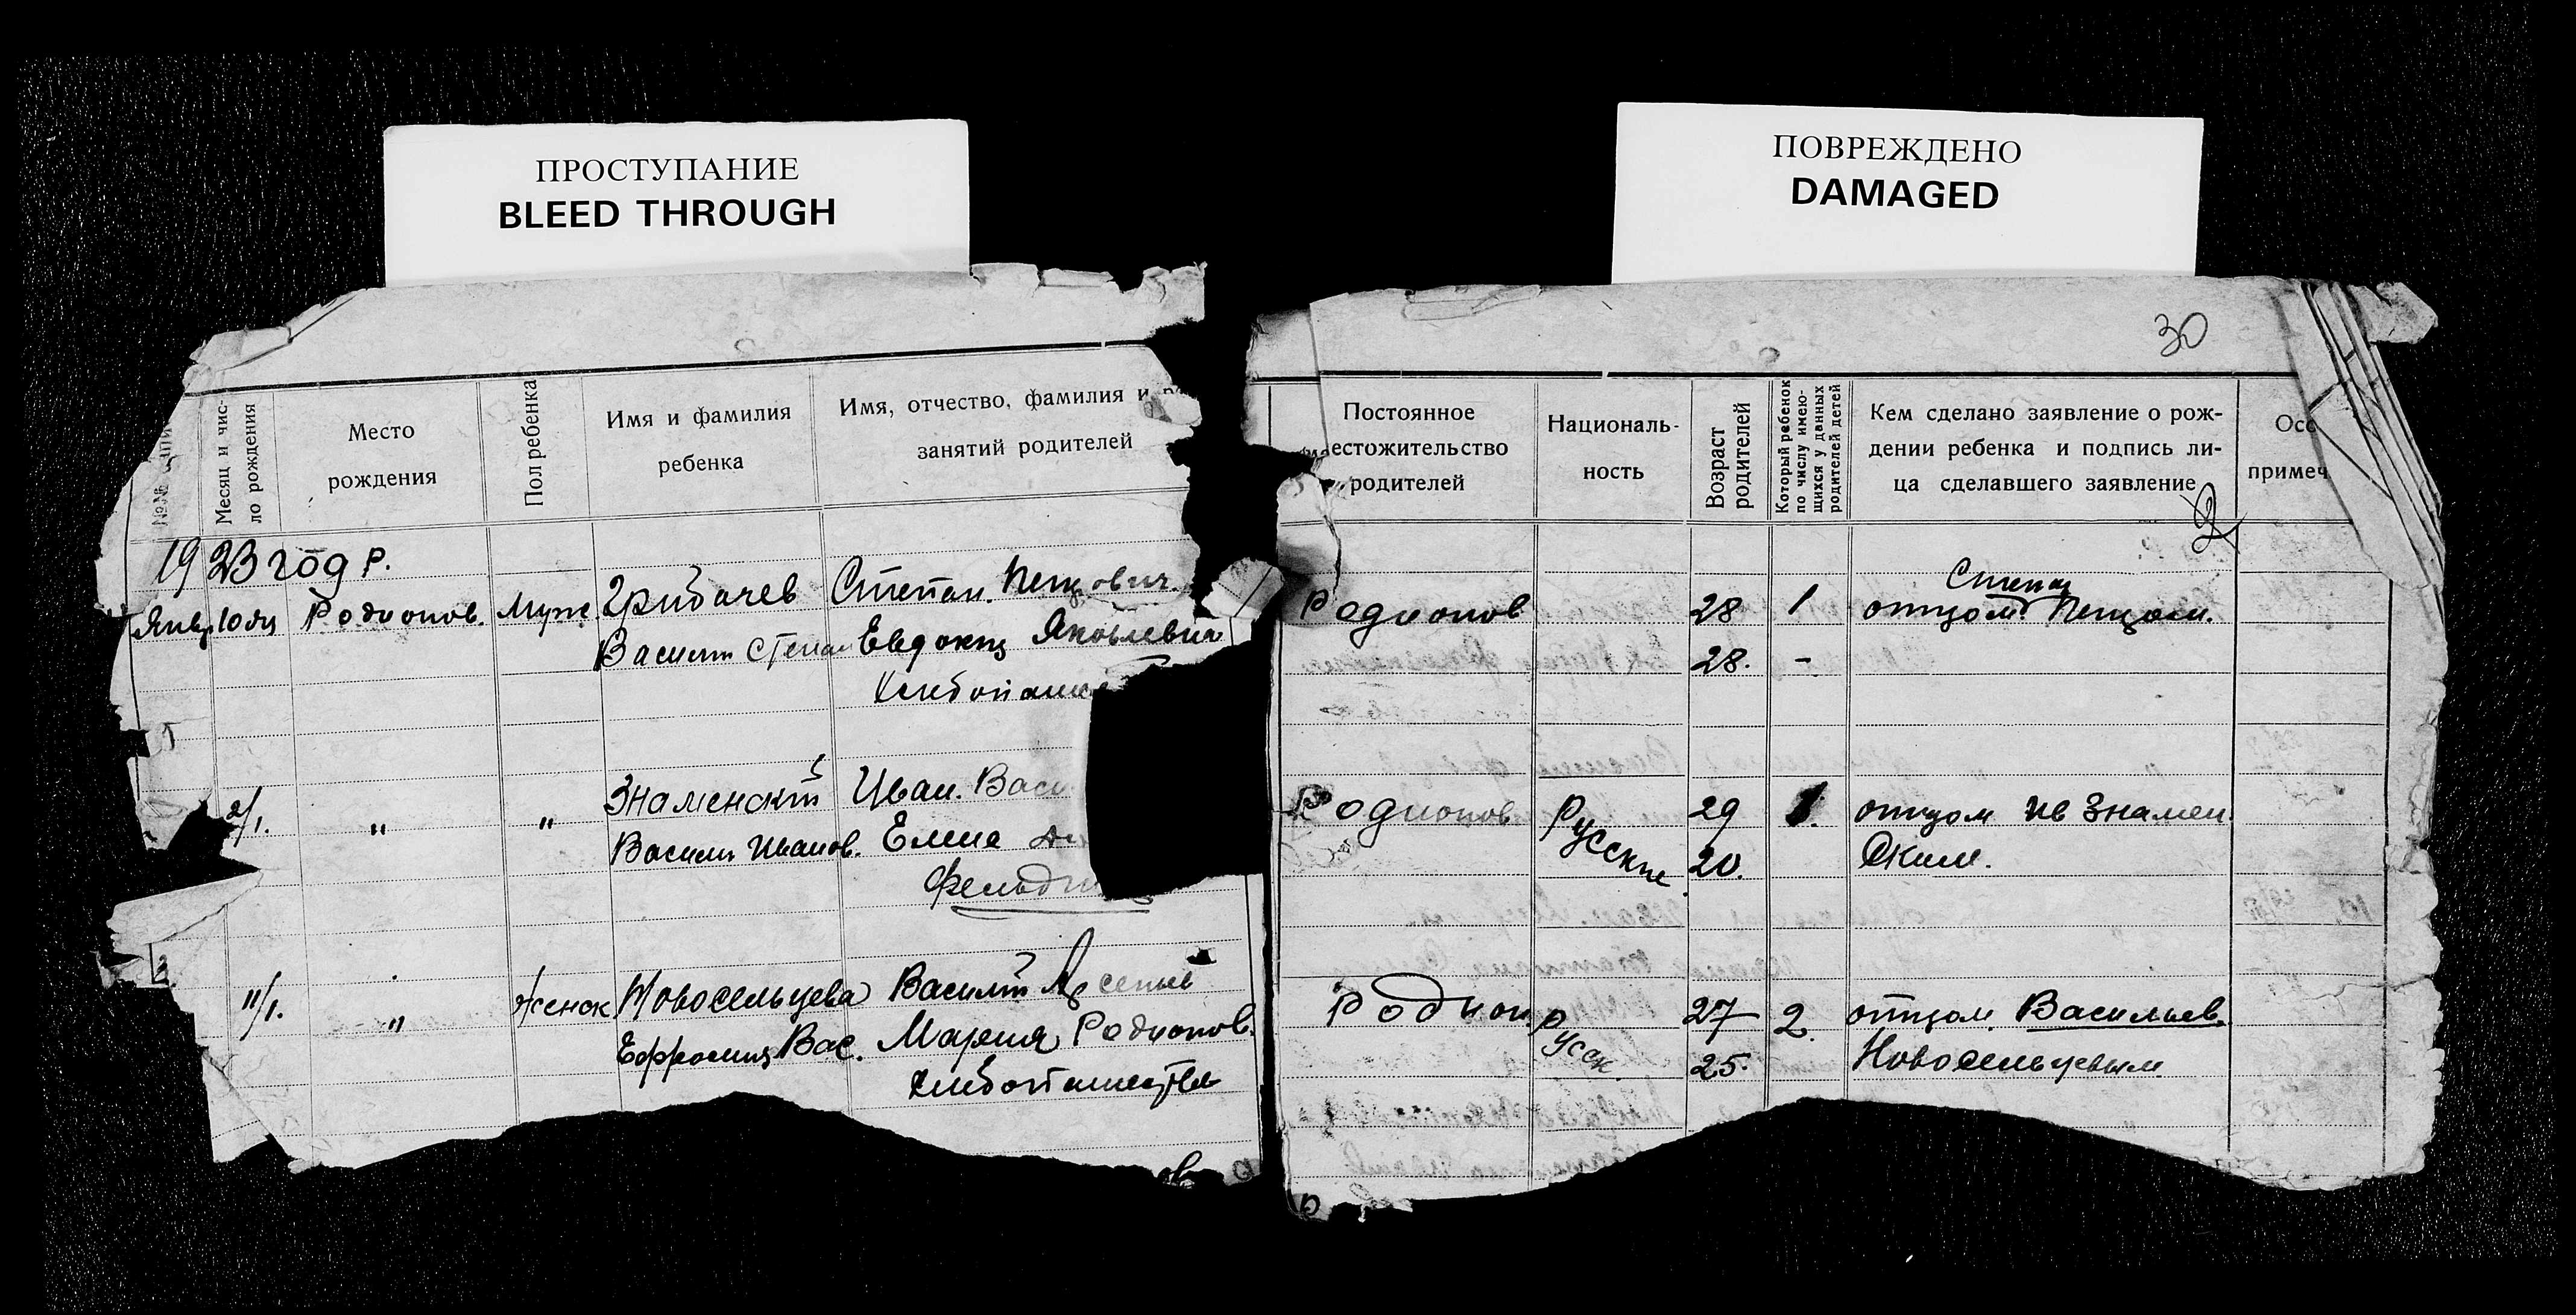 ПРОСТУПАНИЕ
BLEED THROUGH
ПОВРЕЖДЕНО
DAMAGED
30
№№
Месяц и чис-
ло рождения
Место
рождения
Пол ребенка
Имя и фамилия
ребенка
Имя, отчество, фамилия и
занятий родителей
Постоянное
местожительство
родителей
Националь-
ность
Возраст
родителей
Который ребенок
по числу имею-
щихся у данных
родителей детей
Кем сделано заявление о рож-
дении ребенка и подпись ли-
ца сделавшего заявление
Осо
примеч
2
1923 год р.
Родионов. Муж. Грибачев Степан. Петрович. Родионов 28 1 отцом Степан Петром.
Василий Степан Евдокия Яковлевич 28. -
Хлебопаше
1
2/1. " " Знаменский Иван. Васи Родионов Русские 29 1. отцом Ив Знамен.
Василий Иванов. Елена 20. Ским.
Фельд
2
11/1. " Женск. Новосельцева Василий Арсеньев Родион Русск. 27 2. отцом. Васильев.
Ефросиния Вас. Мария Родионов. 25. Новосельцевым
Хлебопашество